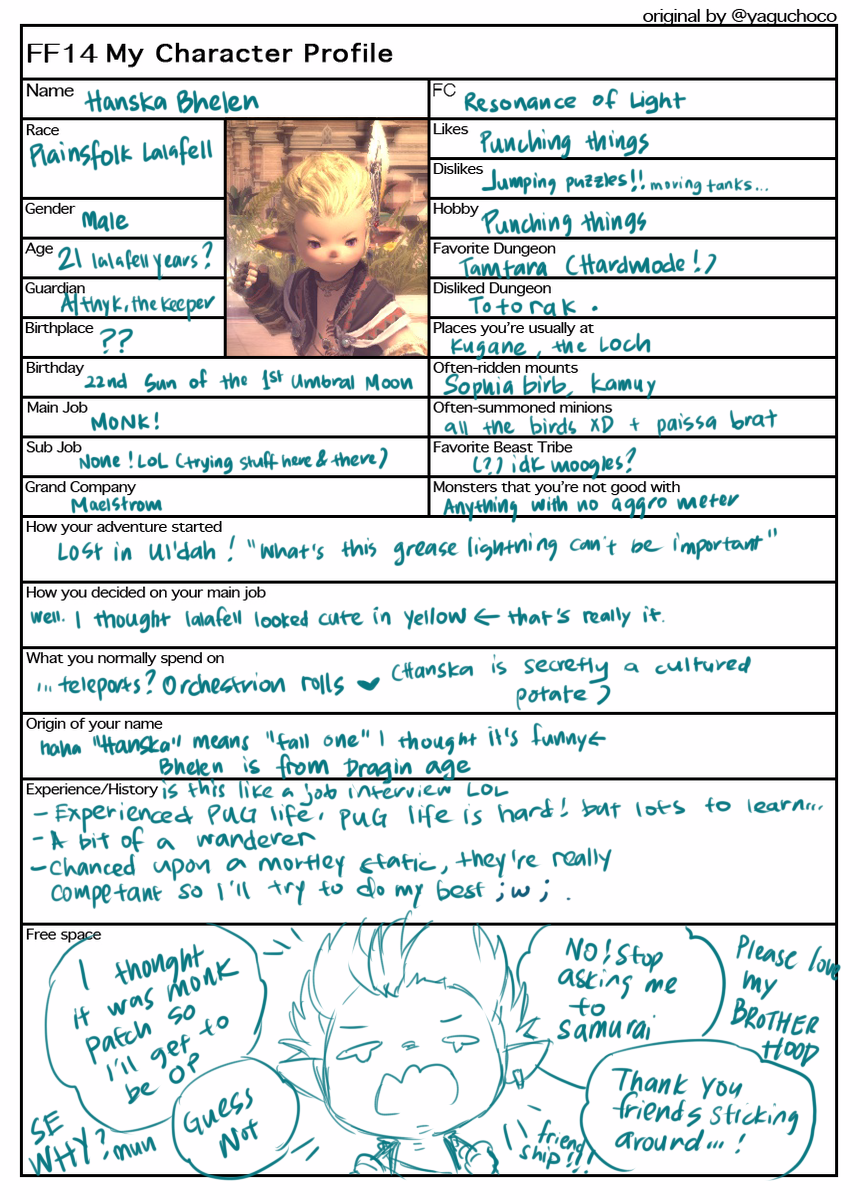 original by @yaquchoco
FF14 My Character Profile
Name Hanska Bhelen
FC Resonance of Light
Race
Plainsfolk Lalafell
Likes Punching things
Dislikes Jumping puzzles!! moving tanks...
Gender Male
Hobby Punching things
Age 21 lalafell years?
Favorite Dungeon
Tamtara (Hardmode!)
Guardian
Althyk, the keeper
Disliked Dungeon
Totorak.
Birthplace ??
Places you're usually at
Kugane, the Loch
Birthday 22nd Sun of the 1st Umbral Moon
Often-ridden mounts
Sophia birb, Kamuy
Main Job
MONK!
Often-summoned minions
all the birds XD + paissa brat
Sub Job
None! LOL (trying stuff here & there)
Favorite Beast Tribe
(?) idk moogles?
Grand Company
Maelstrom
Monsters that you're not good with
Anything with no aggro meter
How your adventure started
Lost in Ul'dah! "What's this grease lightning can't be important"
How you decided on your main job
Well. I thought lalafell looked cute in yellow ← that's really it.
What you normally spend on
... teleports? Orchestrion rolls ♥ (Hanska is secretly a cultured
potate)
Origin of your name
haha "Hanska" means "fall one" I thought it's funny←
Bhelen is from Dragin age
Experience/History is this like a job interview LOL
- Experienced PUG life, PUG life is hard! but lots to learn...
- A bit of a wanderer
- Chanced upon a mortley static, they're really
competant so I'll try to do my best ;w; .
Free space
I thought
it was monk
patch so
I'll get to
be OP
Guess
Not
SE
WHY? mun
NO! Stop
asking me
to
samurai
Please love
my
BROTHER
HOOD
Thank you
friends sticking
around...!
friend
ship!!!